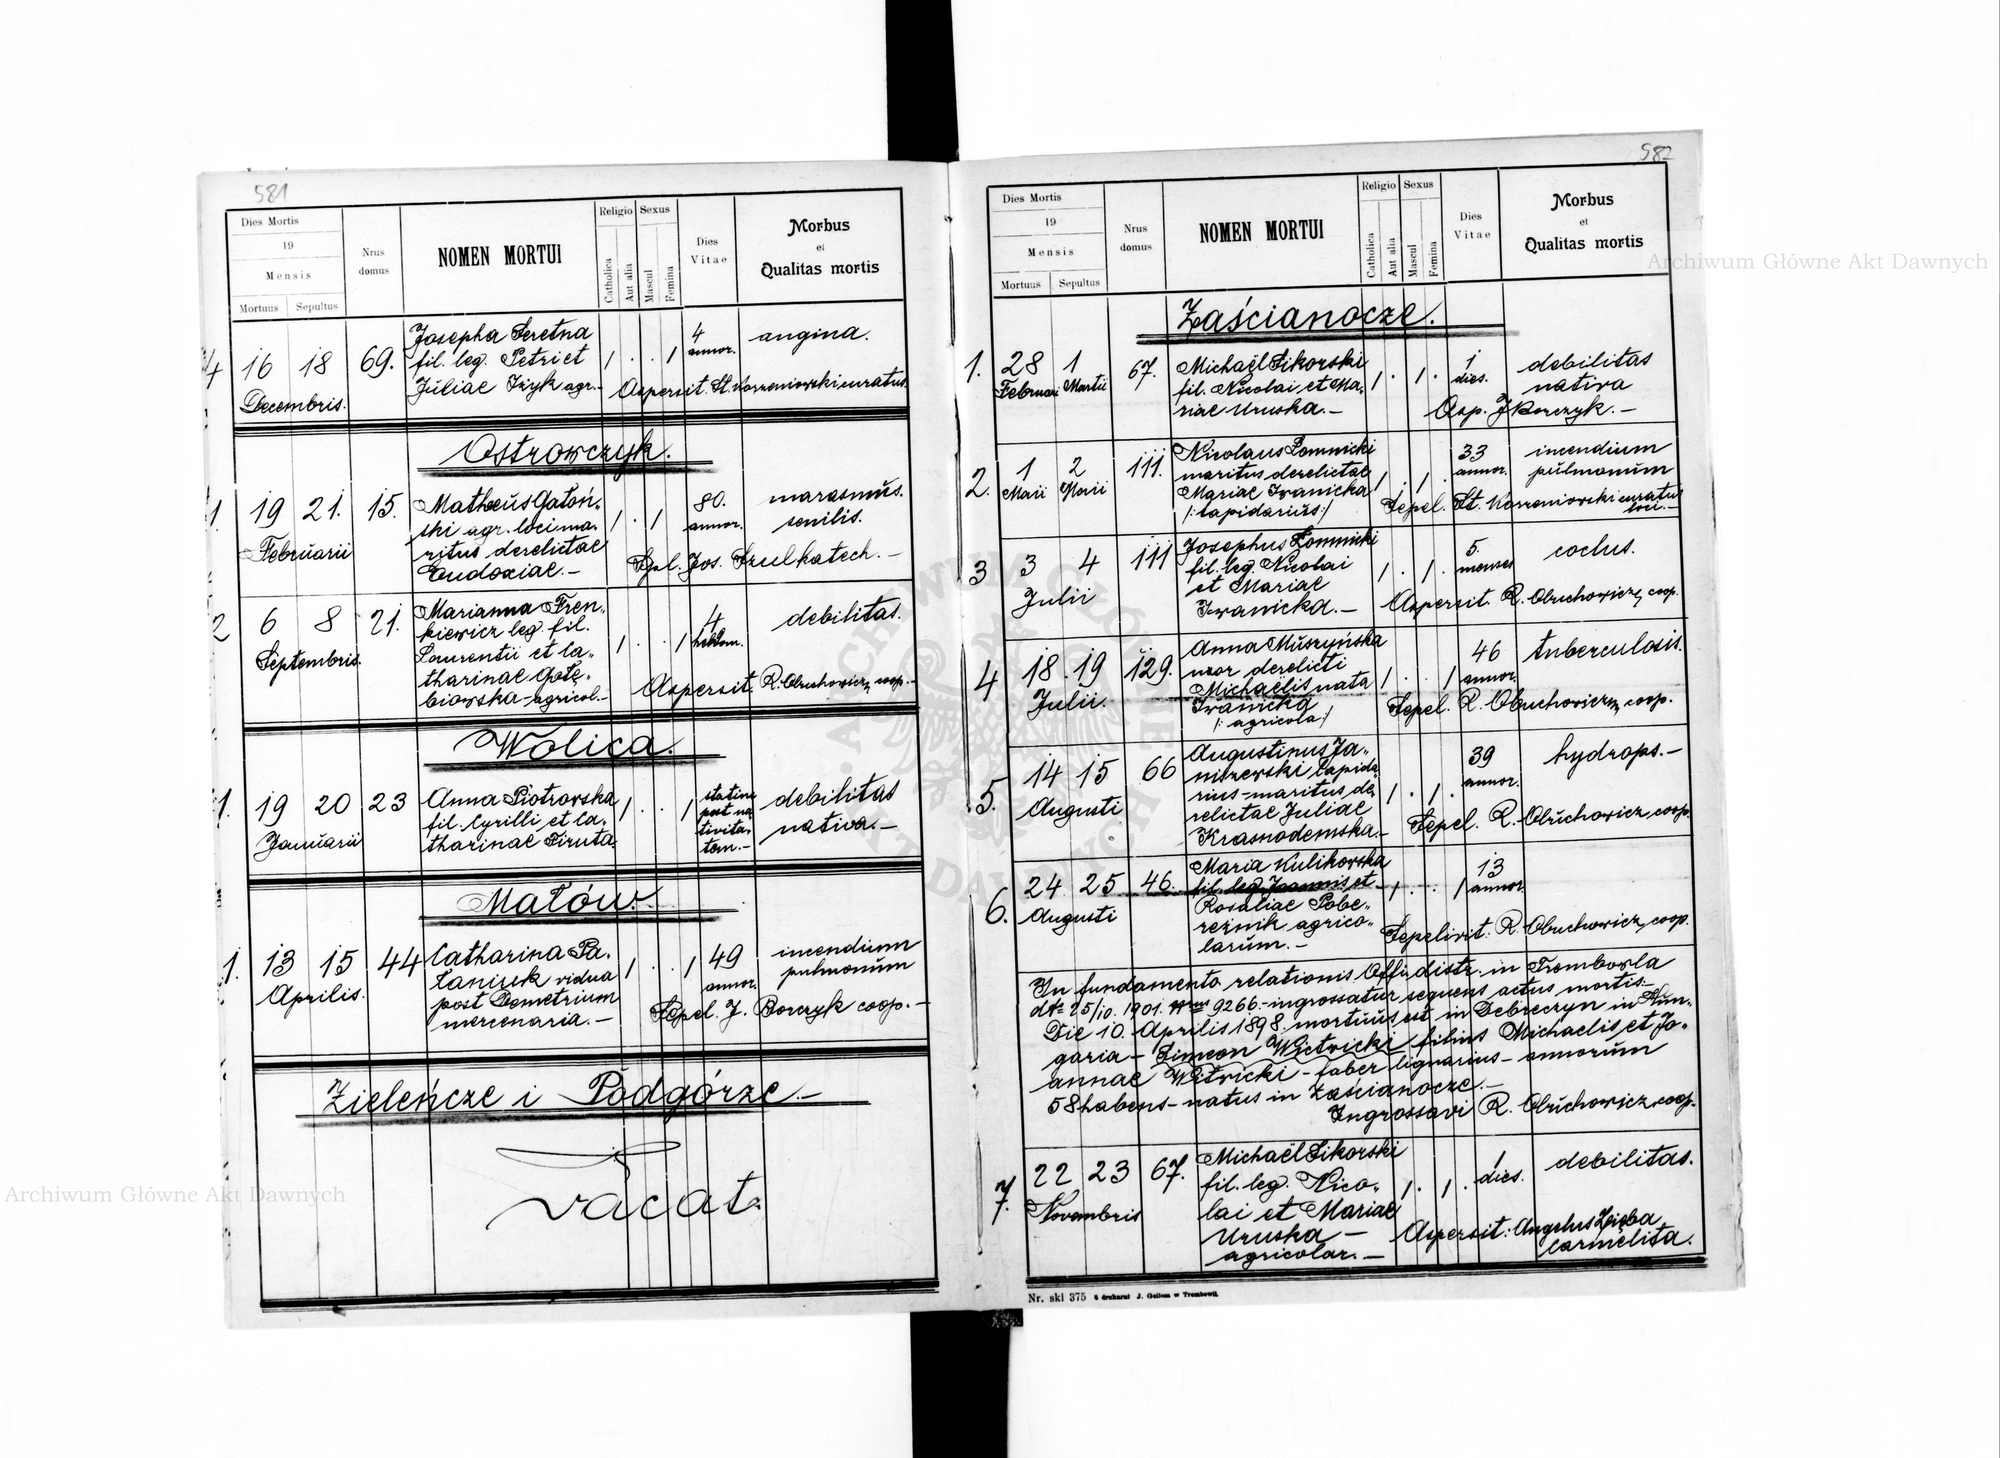 581
Dies Mortis
19
Mensis
Mortuus Sepultus
Nrus
domus
NOMEN MORTUI
Religio Sexus
Catholica
Aut alia
Mascul
Femina
Dies
Vitae
Morbus
et
Qualitas mortis
4 16 18 69. Josepha Seretna
fil. leg. Petri et
Juliae Iżyk agr.-
Decembris.
1 . . 1 4
annor.
angina.
Aspersit. St. Korzeniowski curatus
Ostrowczyk.
1. 19 21. 15. Mathaeus Gatoń-
ski agr. loci ma-
ritus derelictae
Eudoxiae.-
Februarii
1 . 1 80.
annor.
marasmus.
senilis.
Spl. Jos. Szul katech.-
2 6 8 21. Marianna Fren-
kiewicz leg. fil.
Laurentii et Ca-
tharinae Gołę-
biowska-agricol.-
Septembris.
1 . . 1 4
hebdom.
debilitas.
Aspersit. R. Obuchowicz, coop.-
Wolica.
1. 19 20 23 Anna Piotrowska
fil. Cyrilli et Ca-
tharinae Siruta
Januarii
1 . . 1 statim
post na
tivita-
tem.-
debilitas
nativa.-
Małów.
1. 13 15 44 Catharina Pa-
laniuk vidua
post Demetrium
mercenaria.-
Aprilis.
1 . . 1 49
annor.
incendium
pulmonum
Sepel. J. Borczyk coop.-
Zieleńcze i Podgórze.-
vacat.
582
Dies Mortis
19
Mensis
Mortuus Sepultus
Nrus
domus
NOMEN MORTUI
Religio Sexus
Catholica
Aut alia
Mascul
Femina
Dies
Vitae
Morbus
et
Qualitas mortis
Zaścianocze.
1. 28 1 67. Michaël Sikorski
fil. Nicolai et Ma-
riae Uruska.-
Februari Martii
1 . 1 . 1
dies.
debilitas
nativa
Asp. J Borczyk.-
2. 1 2 111. Nicolaus Łomnicki
maritus derelictae
Mariae Iwanicka
/:lapidarius:/
Maii Maii
1 . 1 . 33
annor.
incendium
pulmonum
Sepel. St. Korzeniowski curatus
loci.-
3 3 4 111 Josephus Łomnicki
fil. leg. Nicolai
et Mariae
Iwanicka.-
Julii
1 . 1 . 5.
menses
coclus.
Aspersit. R. Obuchowicz, coop.
4 18. 19 129. Anna Muszyńska
uxor derelicti
Michaëlis nata
Iwanicka
/: agricola:/
Julii.
1 . . 1 46
annor.
tuberculosis.
Sepel. R. Obuchowicz, coop.
5. 14 15 66 Augustinus Ja-
niszewski lapida-
rius-maritus de-
relictae Juliae
Krasnodemska.-
Augusti
1 . 1 . 39
annor.
hydrops.-
Sepel. R. Obuchowicz, coop.
6. 24 25 46. Maria Kulikowska
fil. leg. Joannis et
Rosaliae Pobe-
reżnik agrico-
larum.-
Augusti
1 . . 1 13
annor
Sepelivit: R. Obuchowicz, coop.
In fundamento relationis Offi. distr. in Trembowla
dto 25/10. 1901. 9266.-ingrossatur sequens actus mortis.-
Die 10. Aprilis 1898. mortuus est in Debreczyn in Hun-
garia - Simeon Wietricki filius Michaelis et Jo-
annae Witwicki - faber lignarius - annorum
58 habens - natus in Zaścianocze.-
Ingrossavi R. Obuchowicz, coop.
7. 22 23 67. Michaël Sikorski
fil. leg. Nico-
lai et Mariae
Uruska -
agricolar.-
Novembris
1 . 1 . 1
dies.
debilitas.
Aspersit: Angelus Zięba
Carmelita.
Nr. skł 375 z drukarni J. Gallasa w Trembowli.
Archiwum Główne Akt Dawnych
Archiwum Główne Akt Dawnych
ARCHIWUM GŁÓWNE AKT DAWNYCH